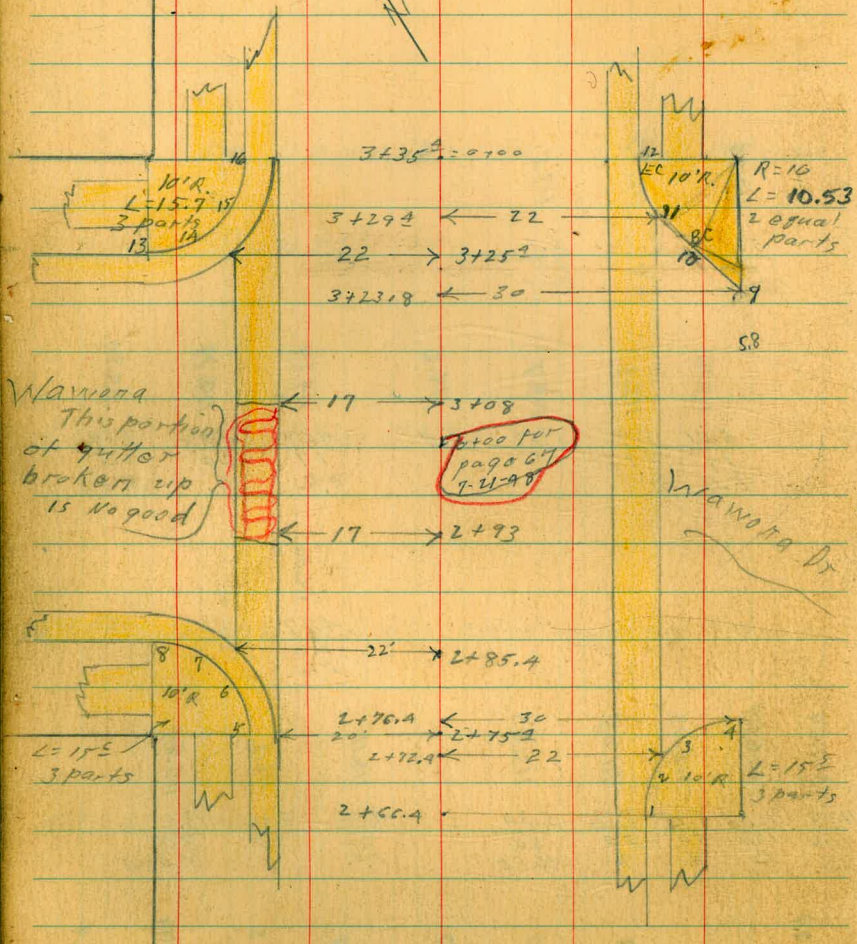 3+35⁴ = 0+00
16
10'R.
L=15.7
3 parts
15
14
13
12
EC 10'R.
R=10
L=10.53
2 equal
parts
3+29⁴ 22
11
BC
10
22 3+25⁴
3+23.8 30
9
5.8
Wawona
This portion
of gutter
broken up
is No good
17 3+08
0+00 for
page 67
7-21-48
17 2+93
Wawona Dr
22' 2+85.4
8
7
6
10'R
5
L=15⁵
3 parts
2+76.4 30
20' 2+75⁴
2+72.4 22
2+66.4
4
3
2 10'R
1
L=15⁵
3 parts